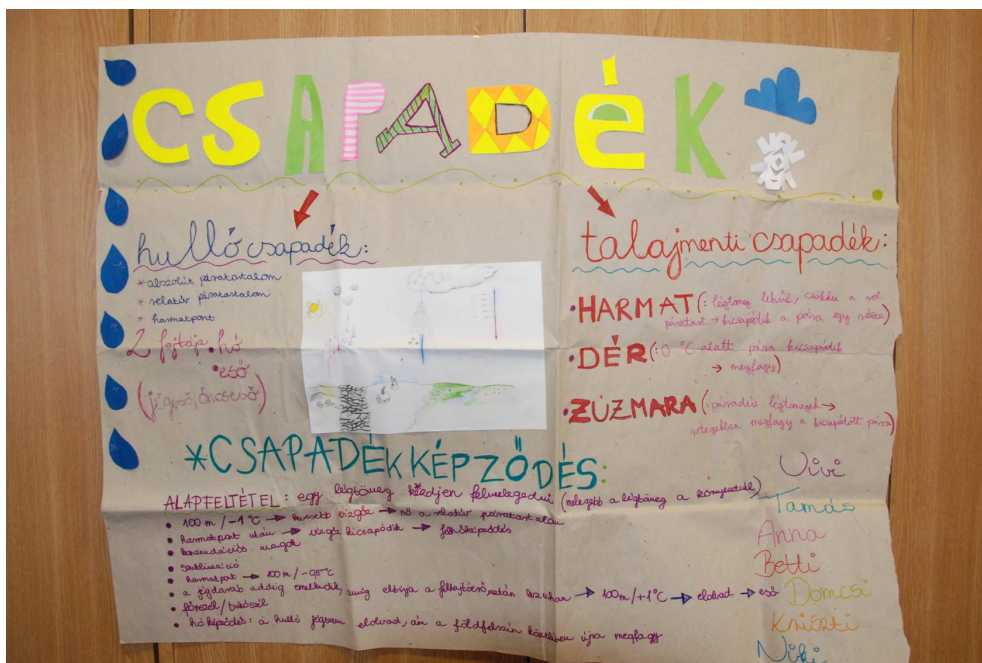 CSAPADÉK
hulló csapadék:
* abszolút páratartalom
* relatív páratartalom
* harmatpont
2 fajtája • hó
• eső
(jégeső, ónoseső)
talajmenti csapadék:
• HARMAT (: légtömeg lehűl, csökken a rel.
páratart → kicsapódik a pára egy része)
• DÉR (: 0 °C alatt pára kicsapódik
→ megfagy)
• ZÚZMARA (: páradús légtömegek →
megfagy a kicsapódott pára)
*CSAPADÉKKÉPZŐDÉS:
ALAPFELTÉTEL: egy légtömeg kezdjen felmelegedni (melegebb a légtömeg a környezeténél)
• 100 m / -1 °C → kevesebb vízgőz → nő a relatív páratartalom
• harmatpont után → vízgőz kicsapódik → felhőképződés
• kondenzációs magok
• szublimáció
• harmatpont → 100 m / -0,5 °C
• a jégdarab addig emelkedik, amíg elbírja a feláramlás, után lezuhan → 100 m / +1 °C → elolvad → eső
• hóképződés: a hulló jégszem elolvad, ám a földfelszín közelében újra megfagy
Vivi
Tamás
Anna
Betti
Domcsi
Kriszti
Niki